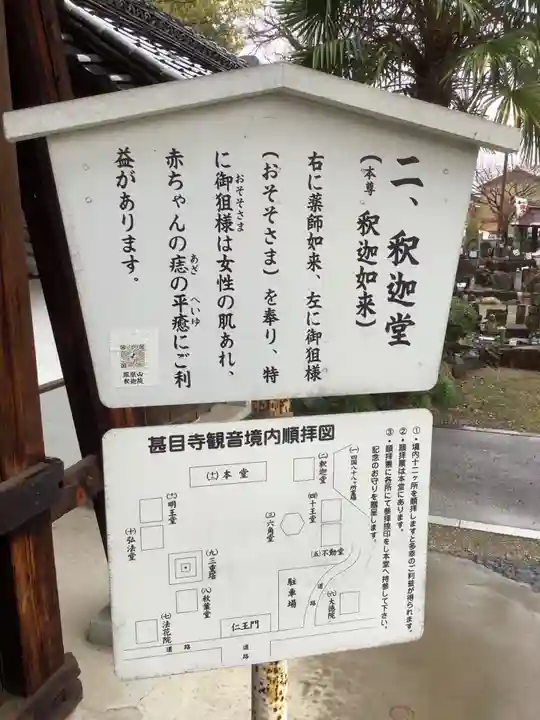 二、釈迦堂
(本尊 釈迦如来)
右に薬師如来、左に御狙様
(おそそさま)を奉り、特
に御狙様は女性の肌あれ、
おそそさま
赤ちゃんの痣の平癒にご利
あざ
へいゆ
益があります。
鳳凰山
釈迦院
甚目寺観音境内順拝図
①・境内十二ヶ所を順拝しますと多幸のご利益が得られます。
②・順拝票は本堂にあります。
③・順拝票に各所にて参拝捺印をし本堂へ持参して下さい。
記念のお守りを贈呈します。
(一)四国八十八ヶ所霊場
(二)釈迦堂
(十二)本堂
(四)十王堂
(三)六角堂
(五)不動堂
明王堂
(十)弘法堂
(九)三重塔
(八)秋葉堂
(七)法花院
仁王門
駐車場
道路
(六)大徳院
道路
道路